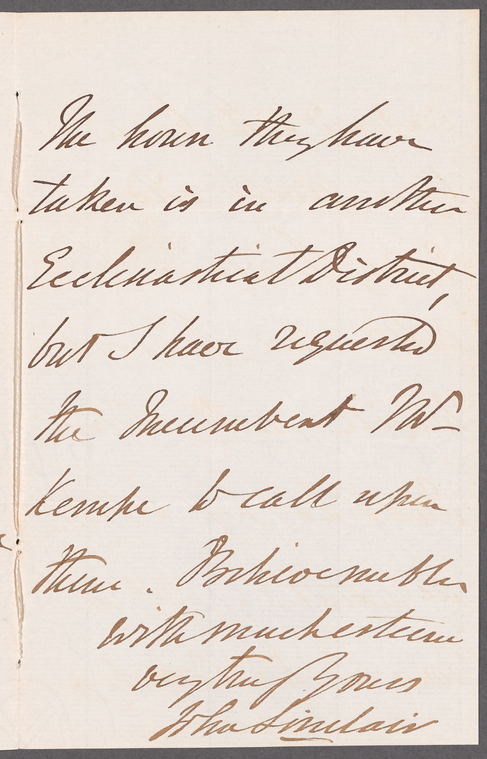 The house they have
taken is in another
Ecclesiastical District,
but I have requested
the Incumbent Mr
Kempe to call upon
them. Believe me to be
with much esteem
very truly yours
John Sinclair